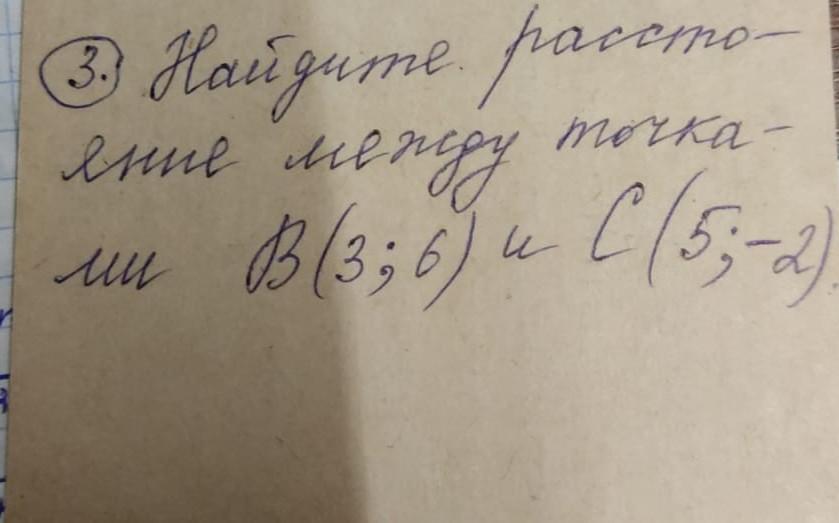 3. Найдите рассто-
яние между точка-
ми В(3; 6) и С(5; -2).